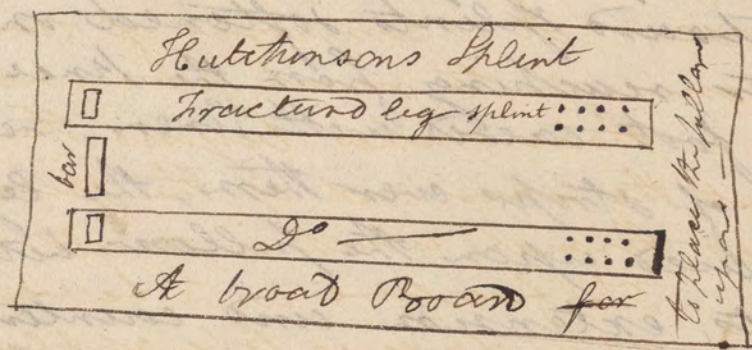 Hutchinsons Splint
Fracturd leg splint
bar
Do
A broad Board for
to place the pillows
upon